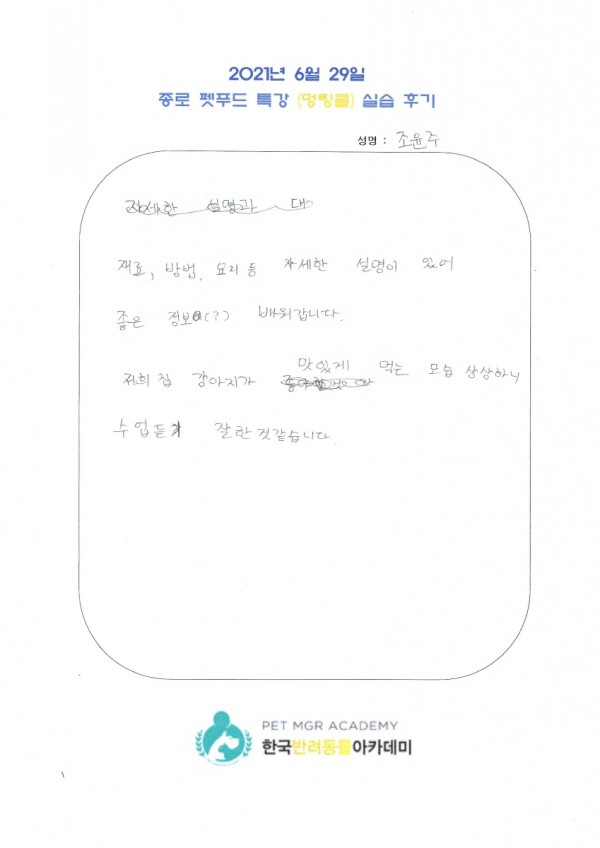 2021년 6월 29일
종로 펫푸드 특강 (멍링쿨) 실습 후기
성명 : 조윤주
자세한 설명과 대
재료, 방법, 요리 등 자세한 설명이 있어
좋은 정보(?) 배워갑니다.
저희 집 강아지가 맛있게 먹는 모습 상상하니
수업듣기 잘한것같습니다.
PET MGR ACADEMY
한국반려동물아카데미